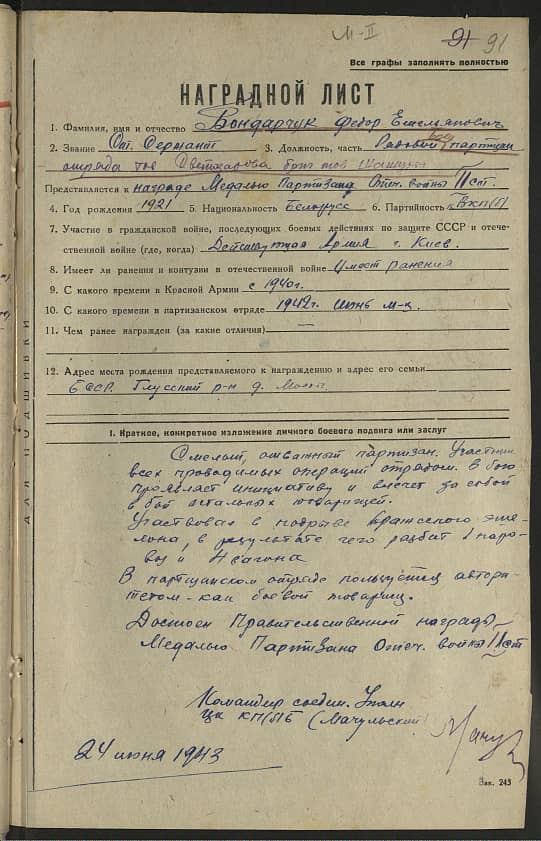 91 91
Все графы заполнять полностью
НАГРАДНОЙ ЛИСТ
1. Фамилия, имя и отчество Бондарчук Федор Емельянович
2. Звание Ст. Сержант 3. Должность, часть Рядовой партизан
отряда тов Цветкова бриг тов
Представляется к награде Медалью Партизана Отеч. войны II ст.
4. Год рождения 1921 5. Национальность Белорусс 6. Партийность ВКП(б)
7. Участие в гражданской войне, последующих боевых действиях по защите СССР и отече-
ственной войне (где, когда) Действующая Армия г. Киев.
8. Имеет ли ранения и контузии в отечественной войне Имеет ранения
9. С какого времени в Красной Армии с 1940г.
10. С какого времени в партизанском отряде 1942г. июнь м-ц
11. Чем ранее награжден (за какие отличия) —
12. Адрес места рождения представляемого к награждению и адрес его семьи
БССР. Глусский р-н д.
ДЛЯ ПОДШИВКИ
I. Краткое, конкретное изложение личного боевого подвига или заслуг
Смелый, отважный партизан. Участник
всех проводимых операций отрядом. В бою
проявляет инициативу и влечет за собой
в бой остальных товарищей.
Участвовал в подрыве вражеского эше-
лона, в результате чего разбит 1 паро-
воз и 4 вагона
В партизанском отряде пользуется автори-
тетом - как боевой товарищ.
Достоен Правительственной награды
Медалью Партизана Отеч. войны II ст
Командир соедин. Уполн
ЦК КП(б)Б (Мачульский)
24 июня 1943
Зак. 245